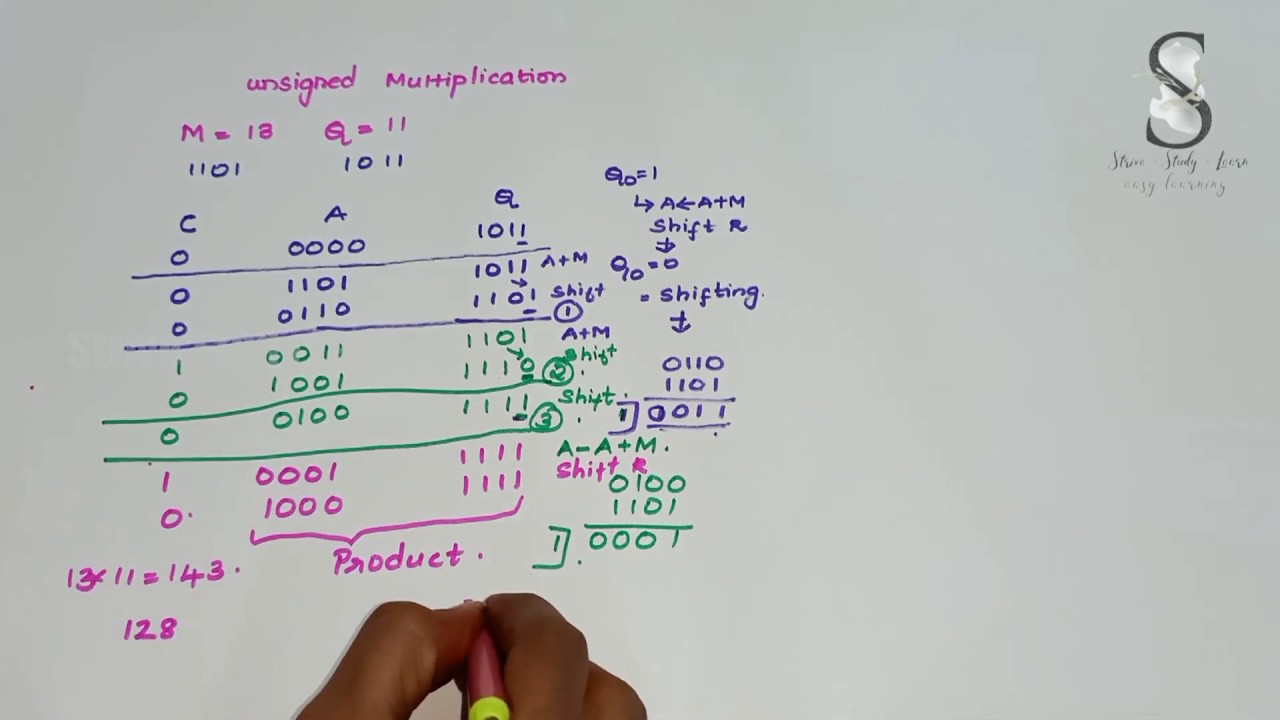 unsigned Multiplication
M = 13 Q = 11
1101 1011
C A Q
0 0000 1011
0 1101 1011 A+M
0 0110 1101 Shift ①
1 0011 1101 A+M
0 1001 1110 Shift ②
0 0100 1111 Shift ③
A-A+M.
1 0001 1111 Shift R
0 1000 1111
Product.
13×11=143.
128
Q0=1
↳ A←A+M
Shift R
↓
Q0=0
= Shifting.
↓
0110
1101
1] 0011
0100
1101
1] 0001
S
Strive - Study - Learn
easy learning